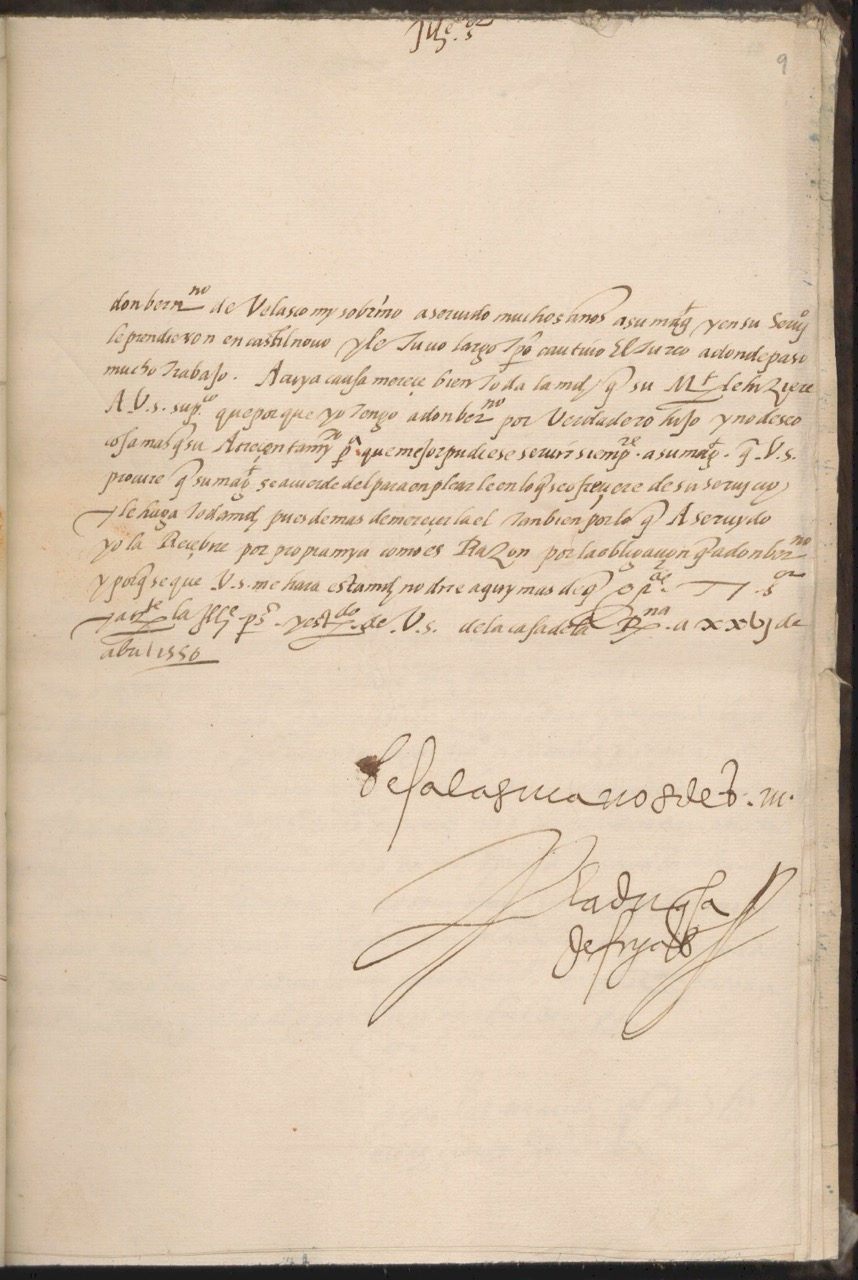 Ill^e. s^or
9
don bern^no de Velasco my sobrino a servido muchos años a su mag^t y en su servi^o
le prendieron en castilnovo y le tuvo largo tp^o cautivo El turco a donde paso
mucho trabajo. A cuya causa mereçe bien toda la md q̃ su M^t le hiziere
A V.s. sup^co que porque yo tengo a don ber^no por Verdadero hijo y no deseo
cosa mas q̃ su Acreçentamy^o p^a que mejor pudiese servir siemp^re a su mag^t. q̃ V.s.
procure q̃ su mag^t se acuerde del para enplearle en lo q̃ se ofreçiere de su serviçio
y le haga toda md pues demas de mereçerla el tanbien por lo q̃ A servydo
yo la Reçebire por propia mya como es Razon por la obligaçion q̃ a don ber^no
y porq̃ se que V.s. me hara esta md no dire aquy mas de q̃ s^or
g^de la Ill^e p^s^a y est^do de V.s. de la casa de la R^na a xxvj de
abril 1556
besa las manos de v. m.
la duq̃sa
de fryas